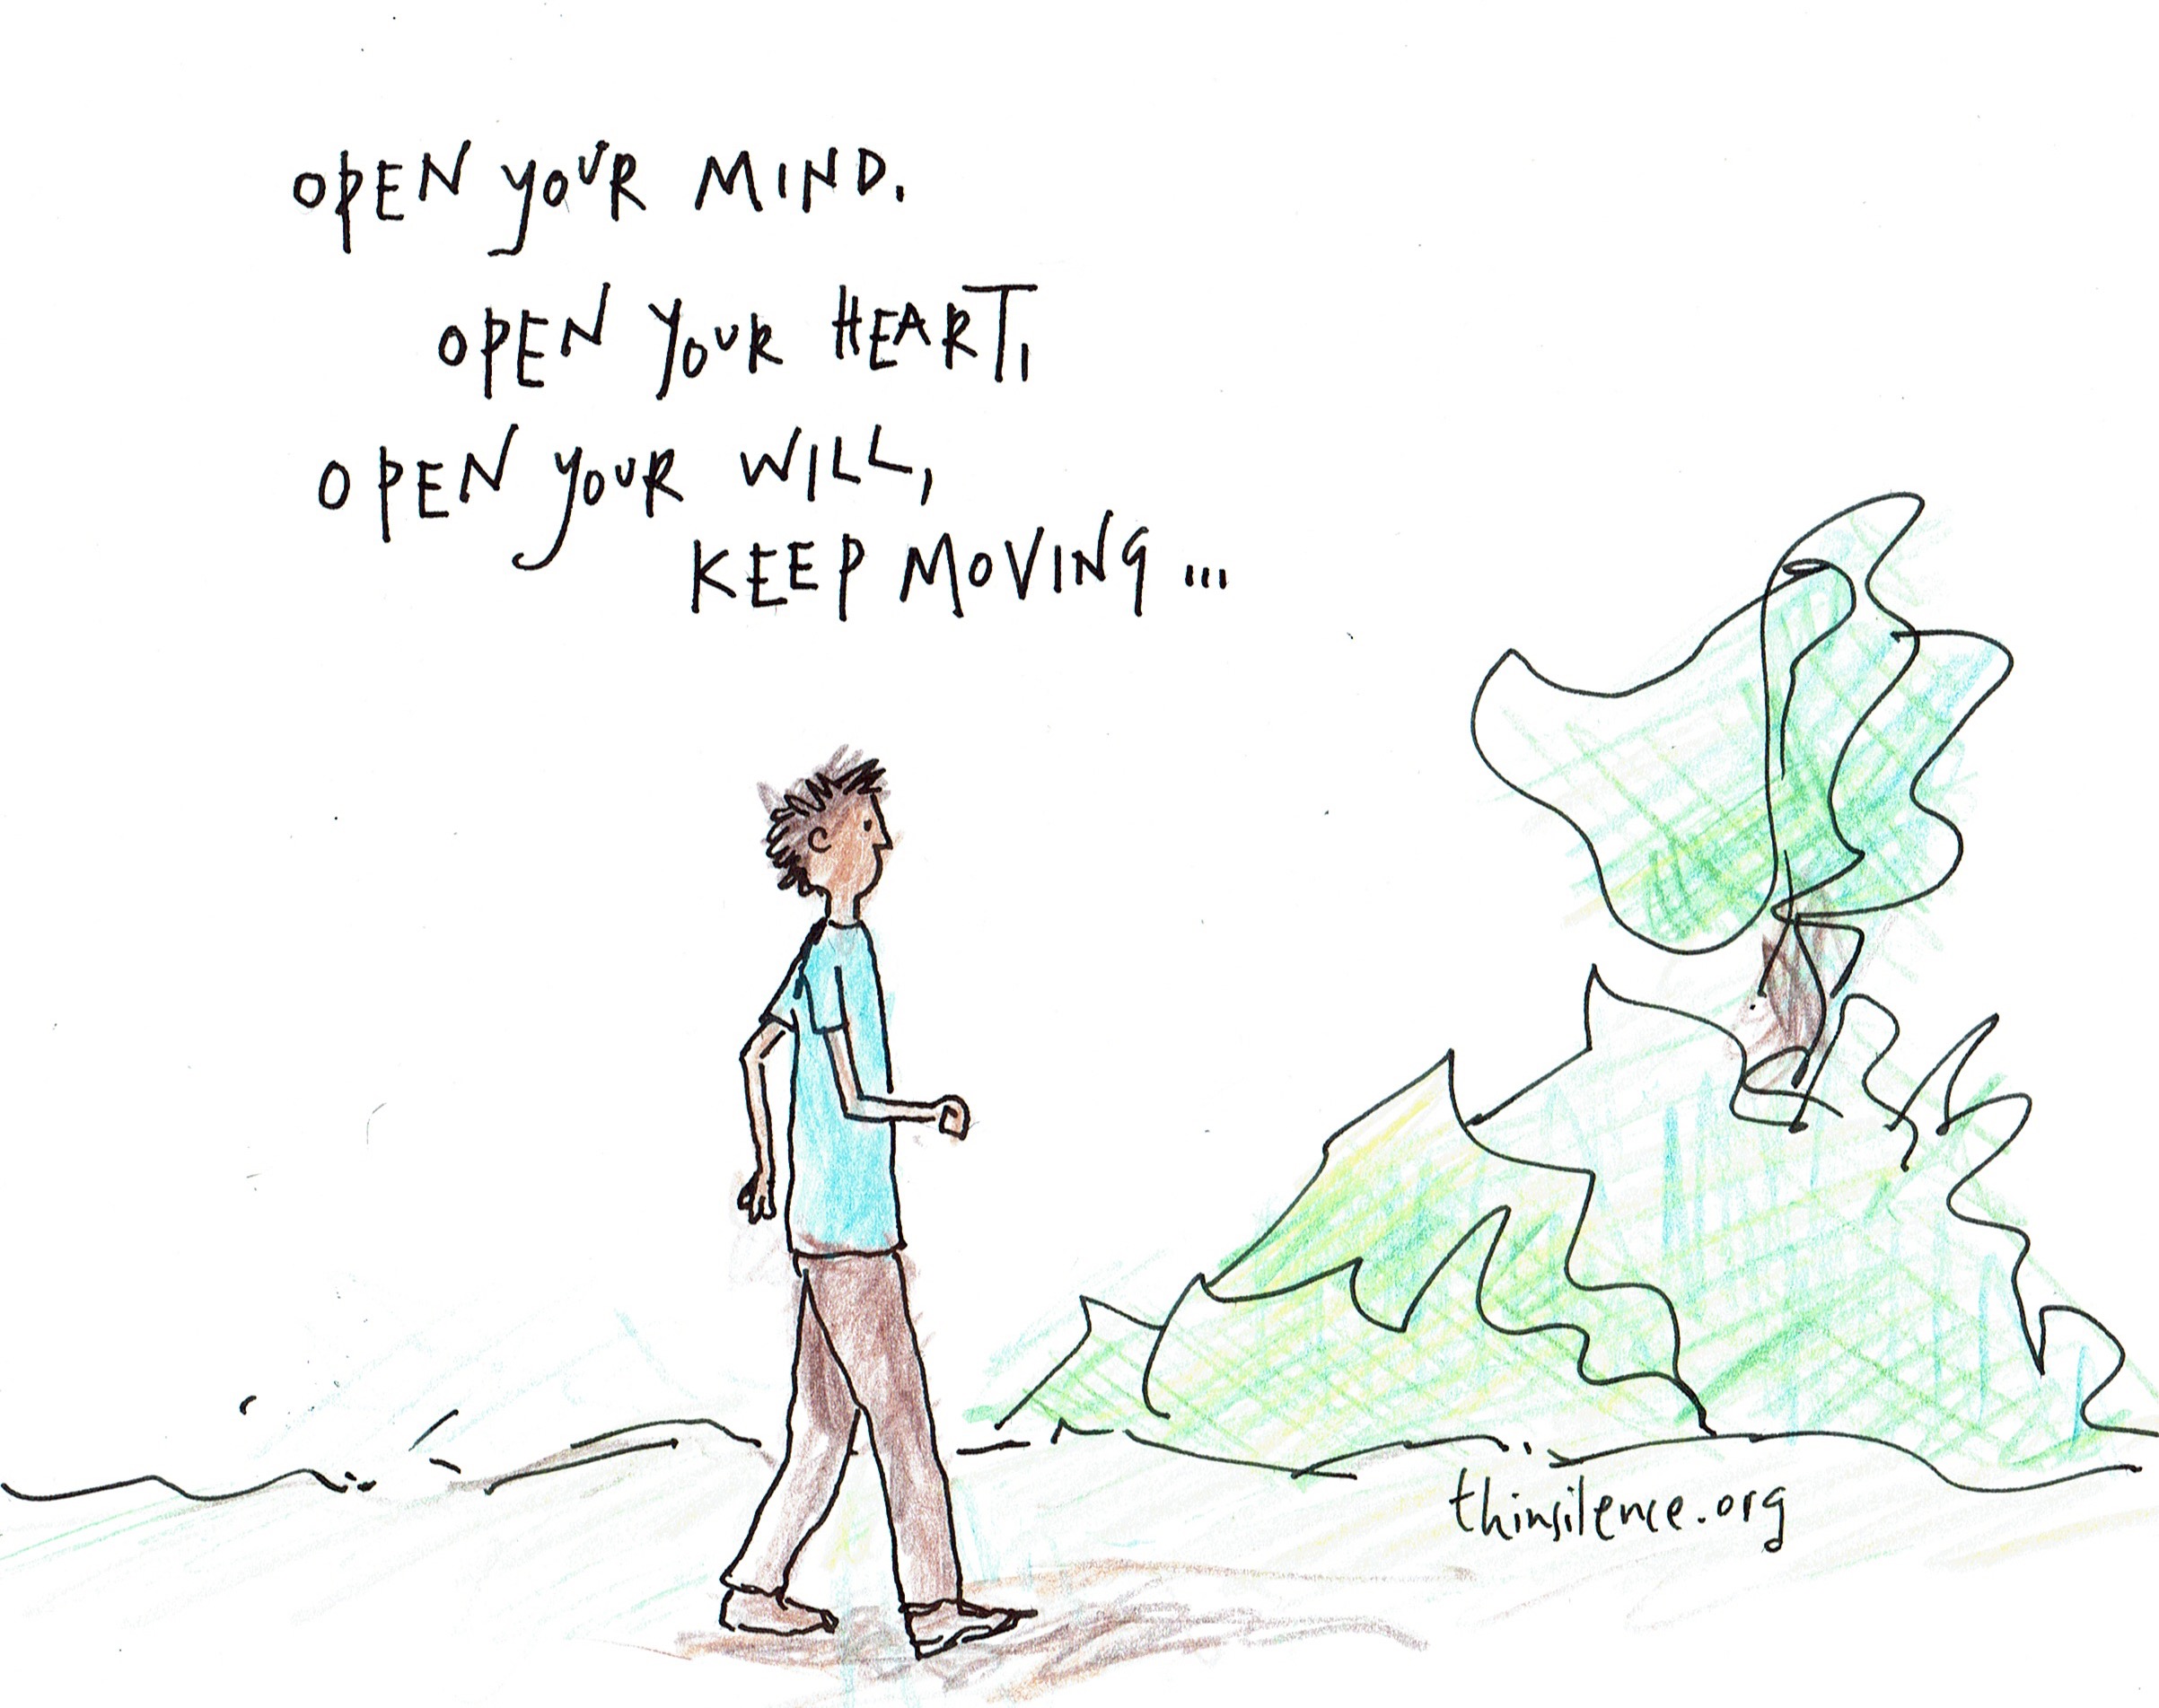 OPEN YOUR MIND.
OPEN YOUR HEART,
OPEN YOUR WILL,
KEEP MOVING ...
thinsilence.org